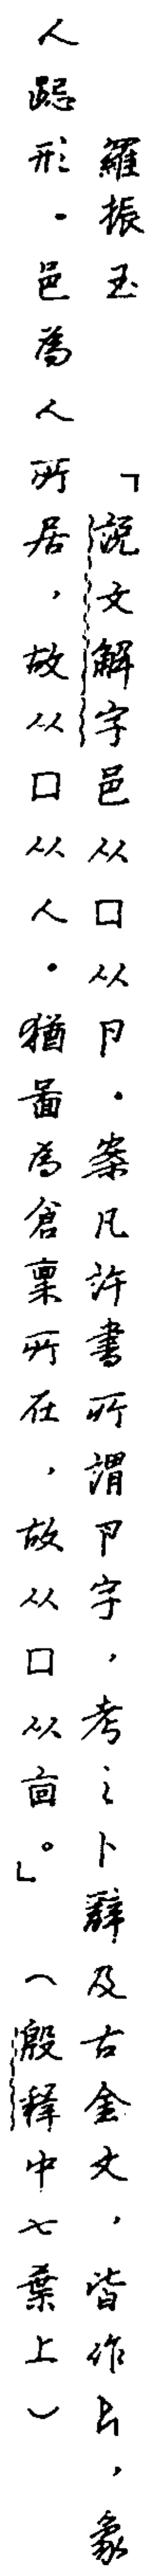 羅振玉　「說文解字邑从囗从卪．案凡許書所謂卪字，考之卜辭及古金文，皆作，象
人跽形．邑為人所居，故从囗从人．猶啚為倉稟所在，故从囗从㐭。」（殷釋中七葉上）